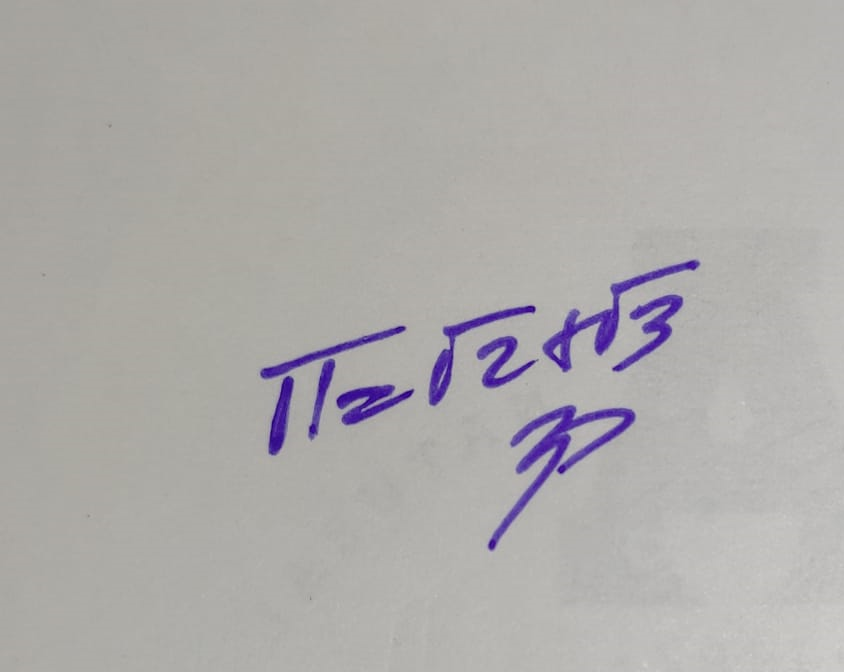 π = √2 + √3